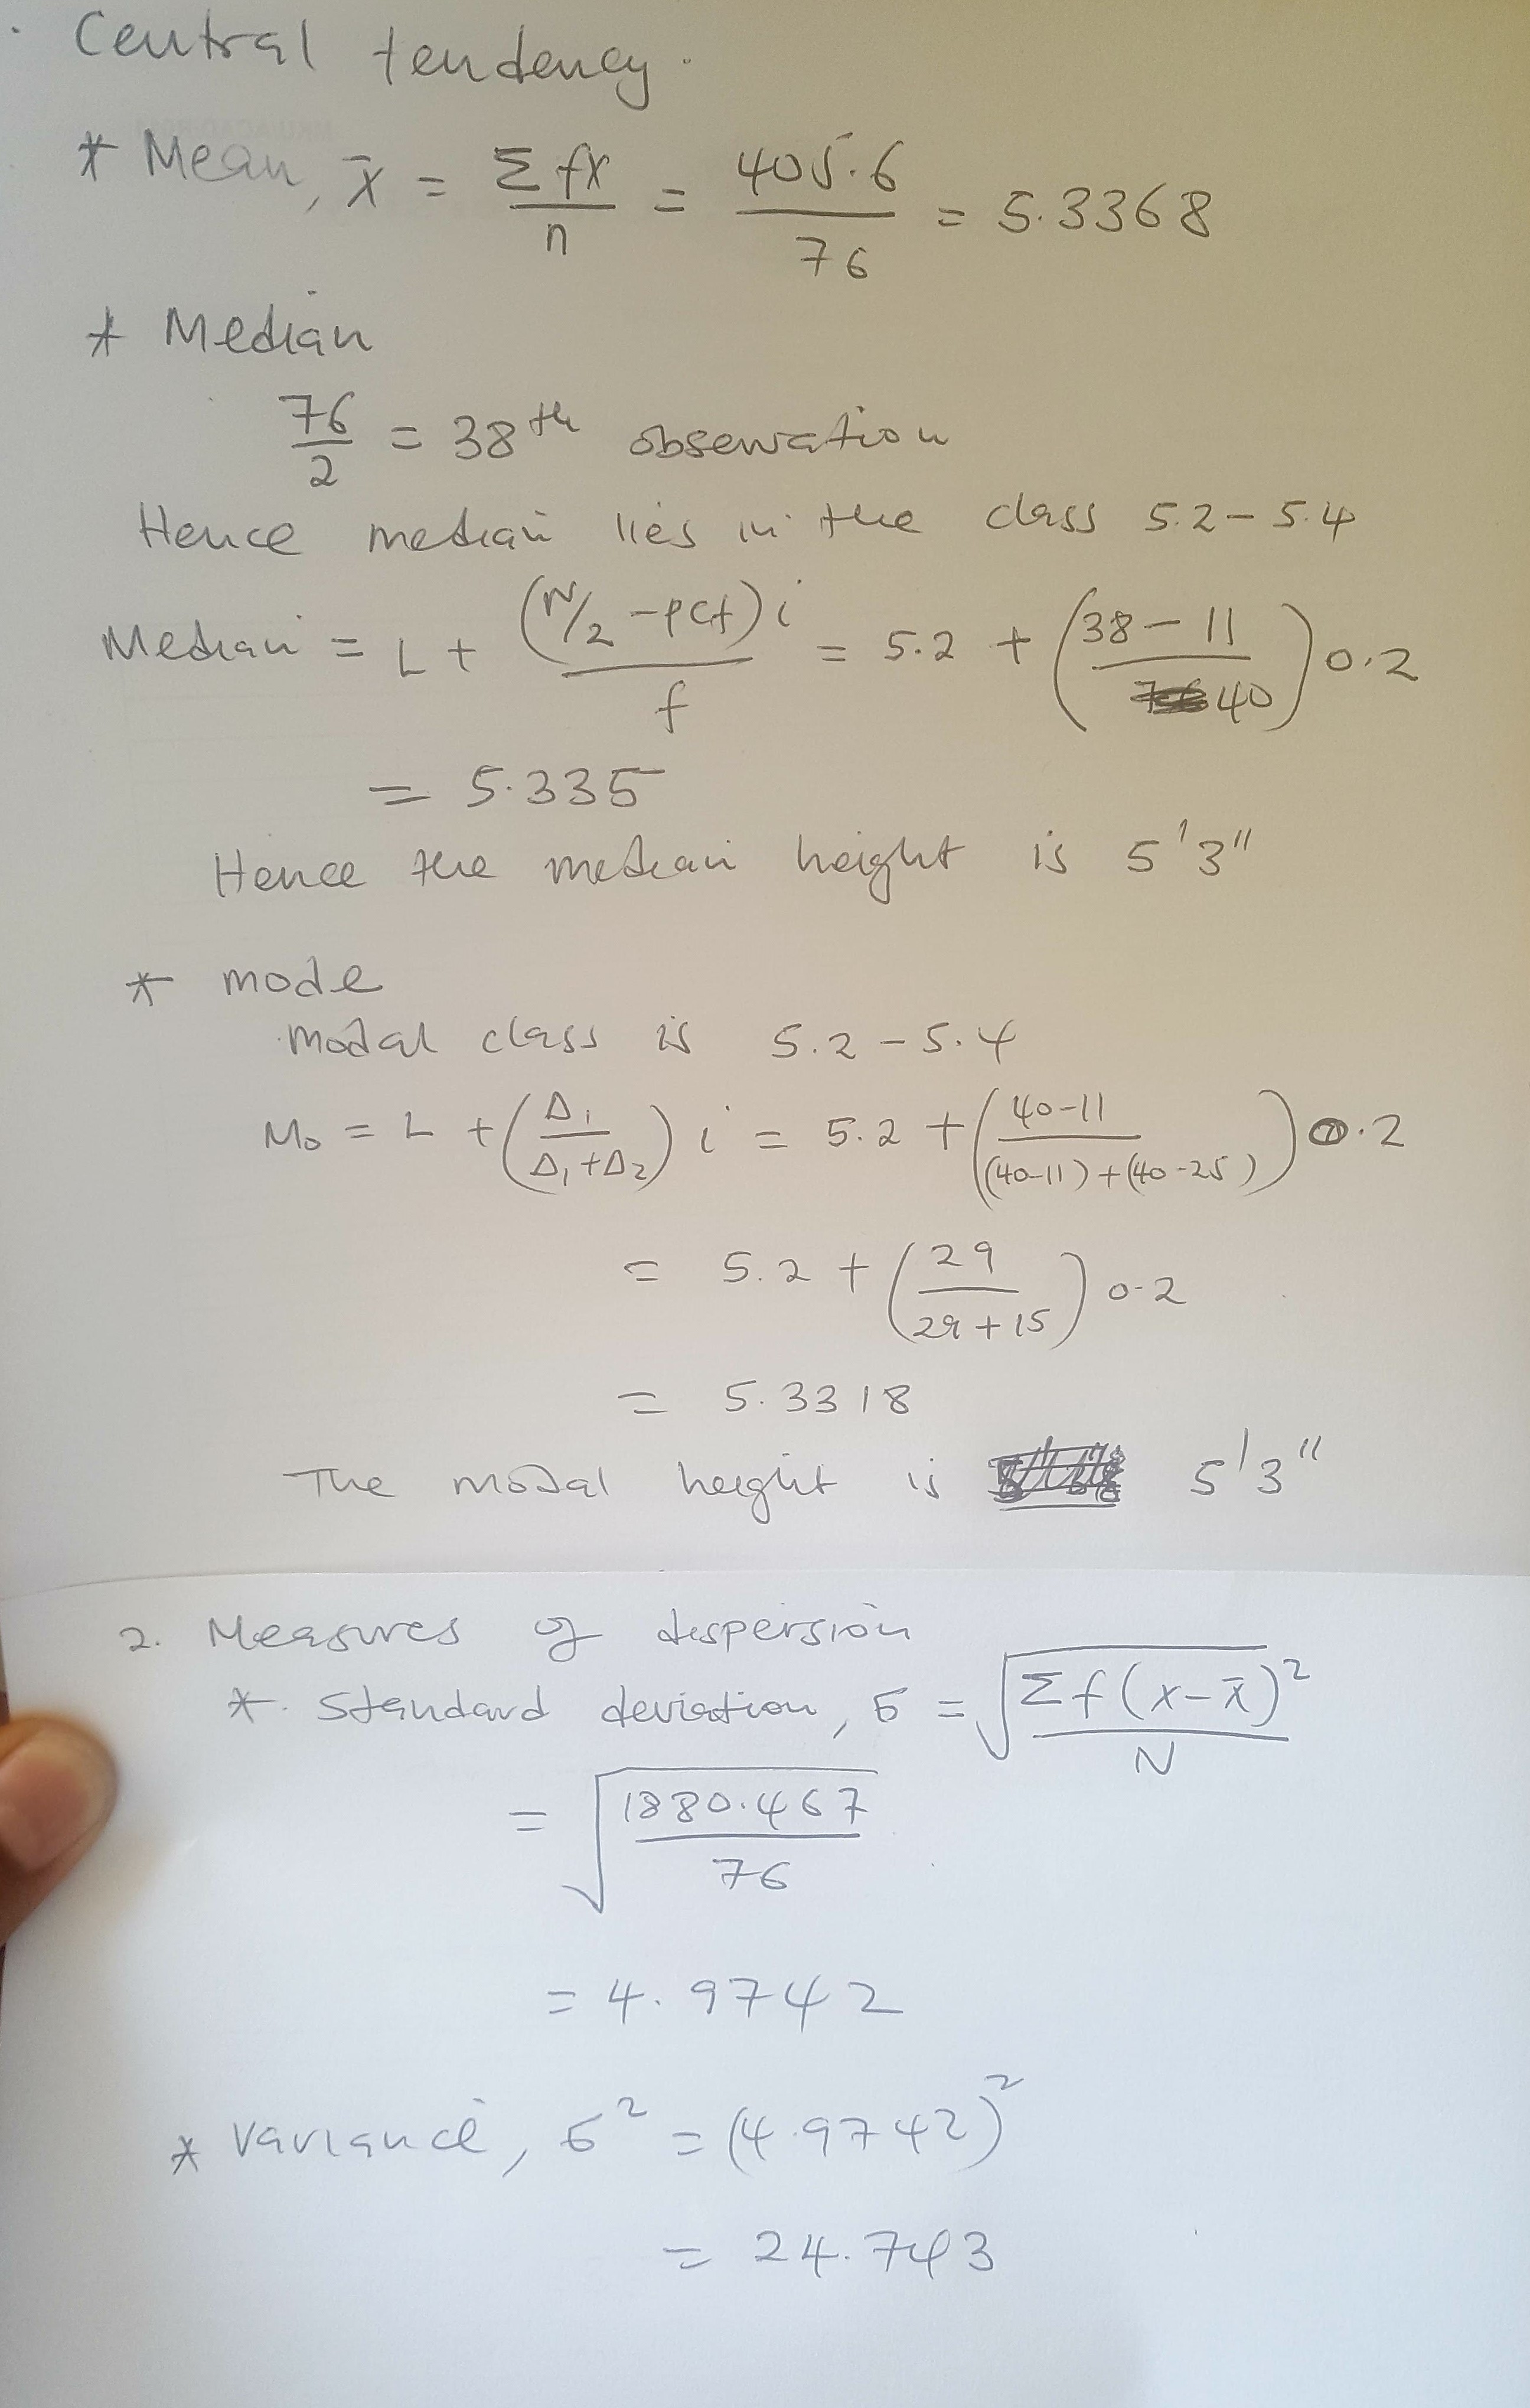 Central tendency.
* Mean, x̄ = Σfx/n = 405.6/76 = 5.3368
* Median
76/2 = 38th observation
Hence median lies in the class 5.2 - 5.4
Median = L + (N/2 - pcf) i / f = 5.2 + ((38 - 11)/40) 0.2
= 5.335
Hence the median height is 5'3"
* mode
modal class is 5.2 - 5.4
Mo = L + (Δ1/(Δ1+Δ2)) i = 5.2 + ((40-11)/((40-11)+(40-25))) 0.2
= 5.2 + (29/(29+15)) 0.2
= 5.3318
The modal height is 5'3"
2. Measures of dispersion
* Standard deviation, σ = √(Σf(x-x̄)²/N)
= √(1880.467/76)
= 4.9742
* variance, σ² = (4.9742)²
= 24.743